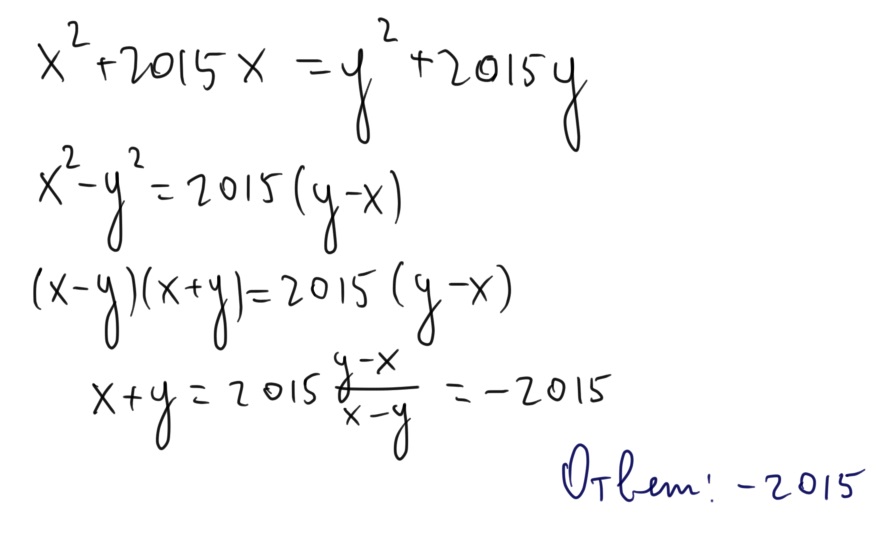 x² + 2015x = y² + 2015y
x² - y² = 2015(y-x)
(x-y)(x+y) = 2015(y-x)
x+y = 2015 \frac{y-x}{x-y} = -2015
Ответ: -2015